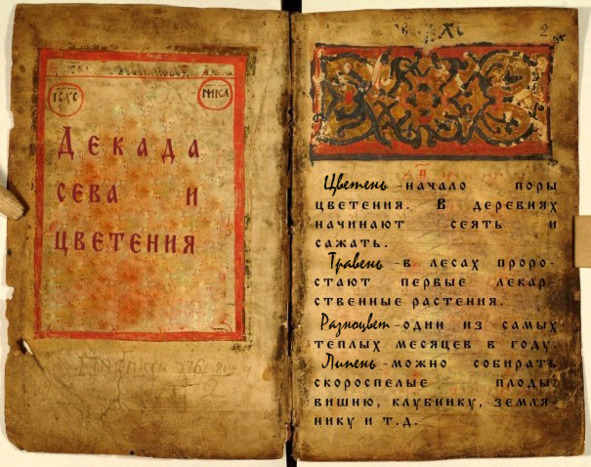 ІС ХС
НИКА
Декада
сева и
цветения
2
Цветень -начало поры
цветения. В деревнях
начинают сеять и
сажать.
Травень -в лесах проро-
стают первые лекар-
ственные растения.
Разноцвет -один из самых
теплых месяцев в году.
Липень -можно собирать
скороспелые плоды:
вишню, клубнику, земля-
нику и т.д.